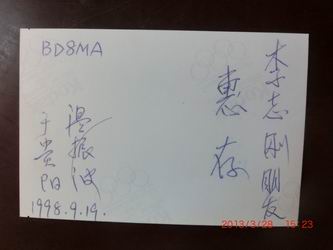 BD8MA
李志刚朋友
惠存
温振波
于贵阳
1998.9.19.
2013/3/28 15:23